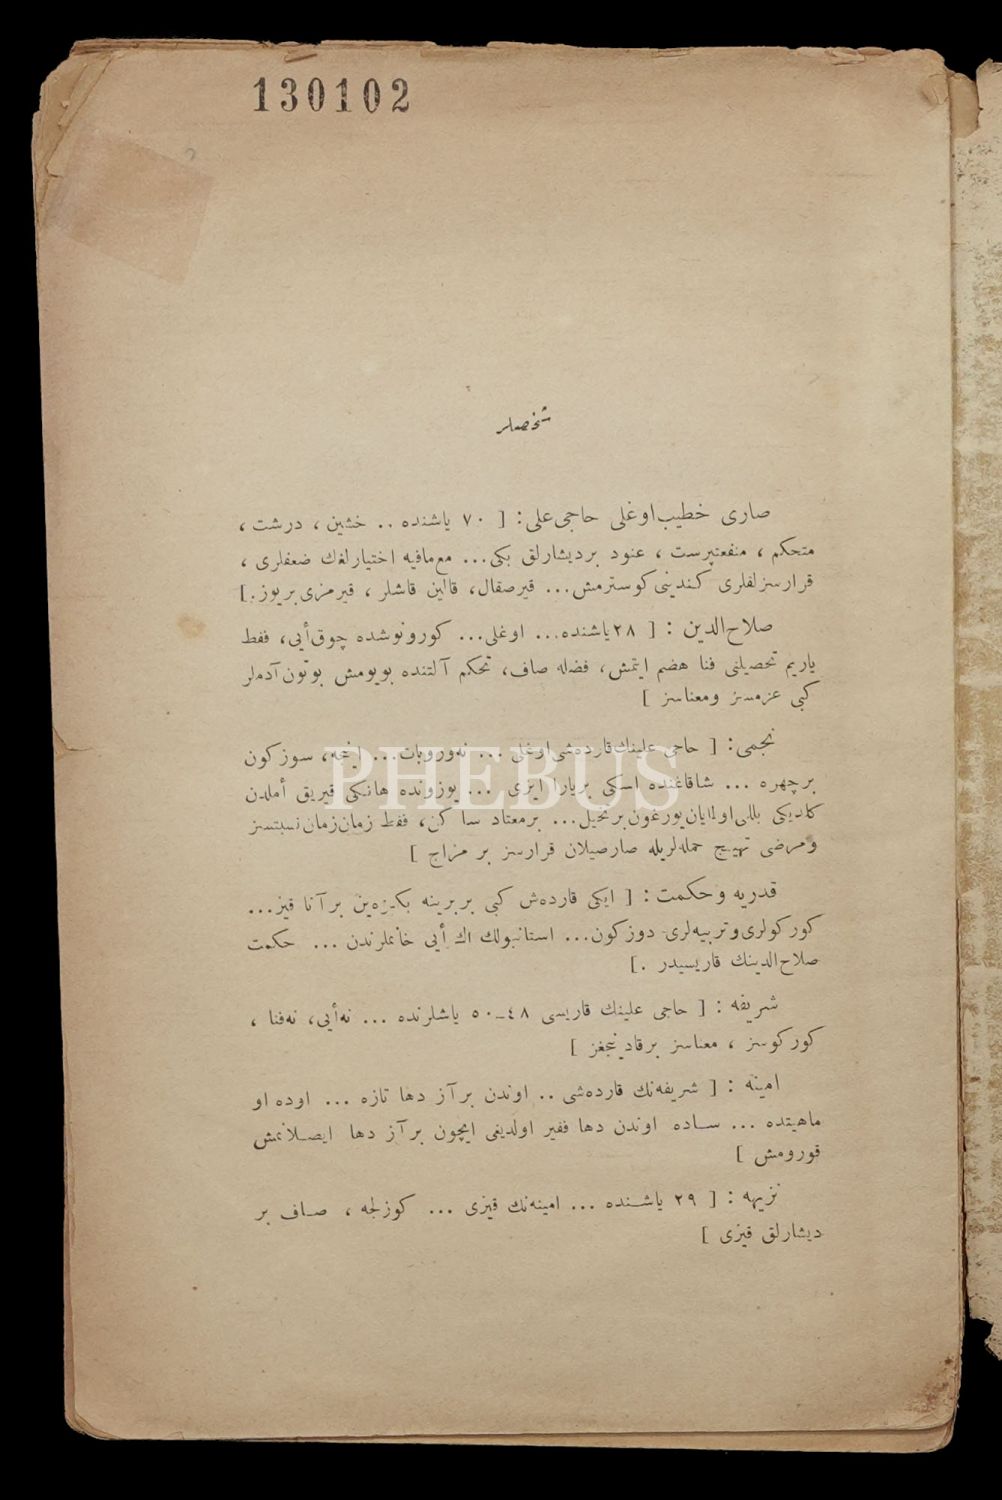 130102
شخصلر
صاری خطیب‌اوغلی حاجی‌علی: [ ٧٠ یاشنده .. خشین ، درشت ،
متحکم ، منفعتپرست ، عنود بردیشارلق بکی... مع‌مافیه اختیارلغك ضعفلری ،
قرارسزلقلری کندینی‌کوسترمش... قیرصقال، قالین قاشلر ، قیرمزی‌بریوز.]
صلاح‌الدین : [ ٢٨یاشنده... اوغلی... کورونوشده چوق‌أیی، فقط
یاریم تحصیلنی فنا هضم ایتمش، فضله صاف، تحکم آلتنده بویومش بوتون‌آدملر
کبی عزمسز ومعناسز ]
نجمی: [ حاجی علینك‌قارده‌شی‌اوغلی ... نه‌وروپات... اینجه، سوزکون
برچهره ... شاقاغنده اسکی بریارا ایزی ... یوزونده هانکی قیریق أملدن
کلدیکی بللی‌اولمایان‌یورغون‌برتخیل... برمعتاد ساکن، فقط زمان‌زمان‌نسبتسز
ومرضی تهییج حمله‌لریله صارصیلان قرارسز بر مزاج ]
قدریه وحکمت : [ ایکی قارده‌ش کبی بربرینه بکزه‌ین برآنا قیز...
کورکولری‌وتربیه‌لری دوزکون... استانبولك اك‌أیی خانملرندن ... حکمت
صلاح‌الدینك قاریسیدر .]
شریفه : [ حاجی علینك قاریسی ٤٨-٥٠ یاشلرنده ... نه‌أیی، نه‌فنا ،
کورکوسز ، معناسز برقادینجغز ]
امینه : [ شریفه‌نك قارده‌شی .. اوندن برآز دها تازه ... اوده او
ماهیتده ... ساده اوندن دها فقیر اولدیغی ایچون برآز دها ایصلانمش
قورومش ]
نزیهه : [ ٢٩ یاشنده ... امینه‌نك قیزی ... کوزلجه ، صاف بر
دیشارلق قیزی ]
PHEBUS